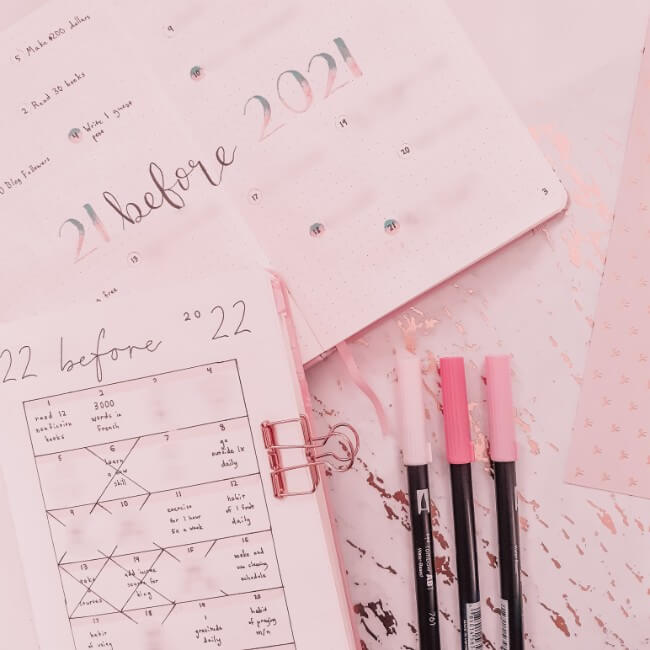 5 Make $200 dollars
2. Read 30 books
4 Write 1 guest
post
Blog Followers
9
10
21 before 2021
13
a free
19
20
17
18
21
3
22 before 2022
1
read 12
nonfiction
books
2
3000
words in
French
3
4
5
6
learn
a new
skill
7
8
go
outside 1x
daily
9
10
11
exercise
for 1 hour
5x a week
12
habit
of 1 fruit
daily
13
courses
14
add income
source for
blog
15
16
make and
use cleaning
schedule
17
habit
of using
18
19
1
gratitude
daily
20
habit
of praying
m/n
761